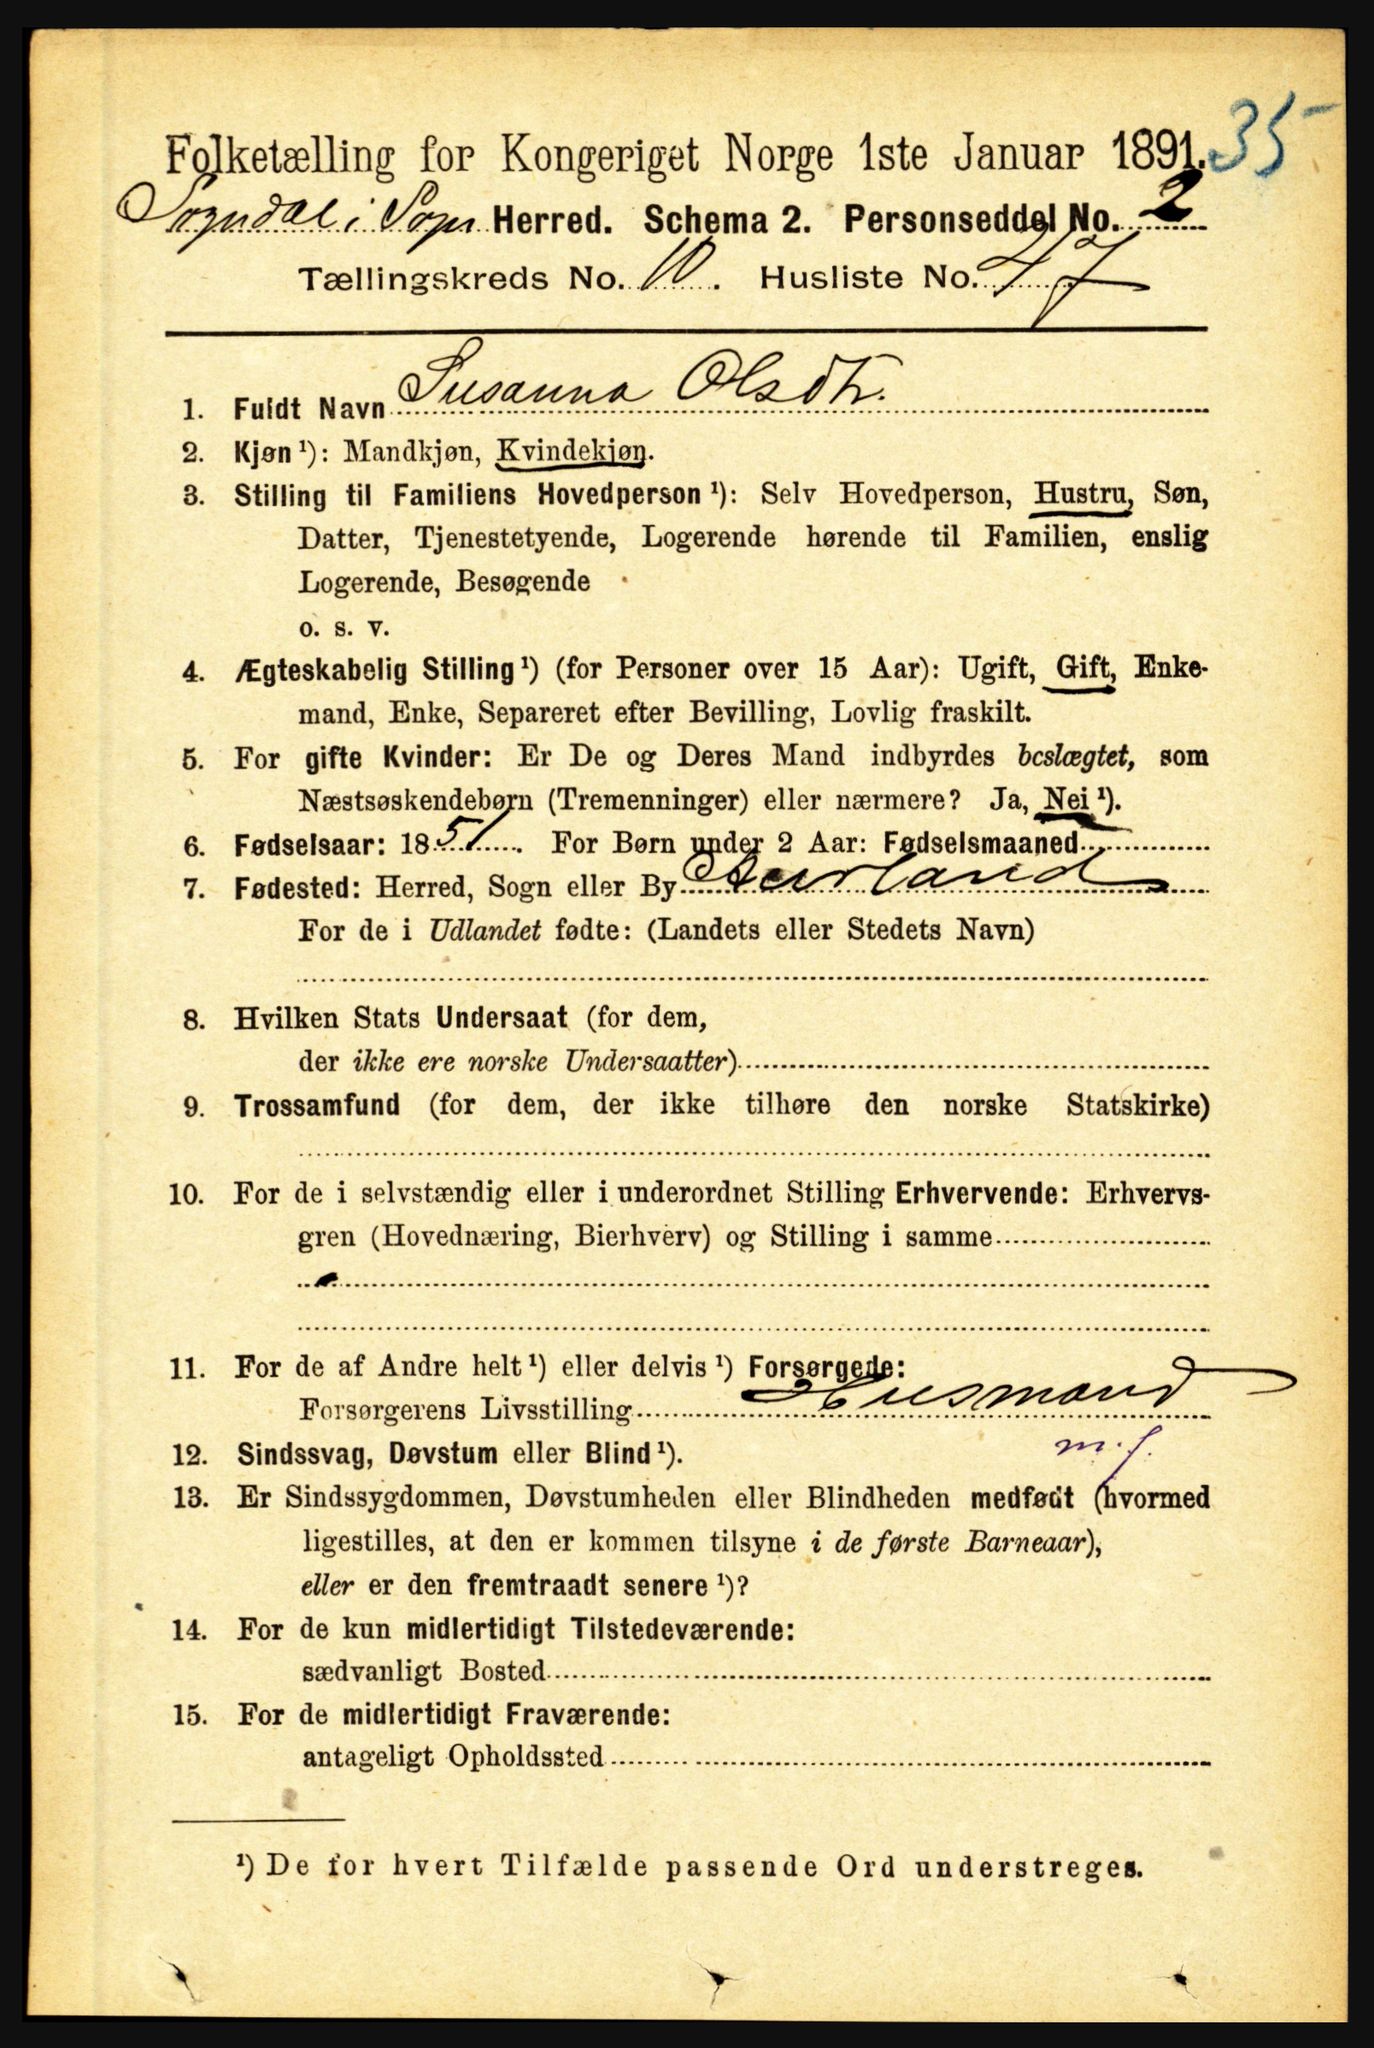 35
Folketælling for Kongeriget Norge 1ste Januar 1891.
Sogndal i Sogn Herred. Schema 2. Personseddel No. 2
Tællingskreds No. 10. Husliste No. 47
1. Fuldt Navn Susanna Olsdtr.
2. Kjøn ¹): Mandkjøn, Kvindekjøn.
3. Stilling til Familiens Hovedperson ¹): Selv Hovedperson, Hustru, Søn,
Datter, Tjenestetyende, Logerende hørende til Familien, enslig
Logerende, Besøgende
o. s. v.
4. Ægteskabelig Stilling ¹) (for Personer over 15 Aar): Ugift, Gift, Enke-
mand, Enke, Separeret efter Bevilling, Lovlig fraskilt.
5. For gifte Kvinder: Er De og Deres Mand indbyrdes beslægtet, som
Næstsøskendebørn (Tremenninger) eller nærmere? Ja, Nei ¹).
6. Fødselsaar: 1851. For Børn under 2 Aar: Fødselsmaaned
7. Fødested: Herred, Sogn eller By Aurland
For de i Udlandet fødte: (Landets eller Stedets Navn)
8. Hvilken Stats Undersaat (for dem,
der ikke ere norske Undersaatter)
9. Trossamfund (for dem, der ikke tilhøre den norske Statskirke)
10. For de i selvstændig eller i underordnet Stilling Erhvervende: Erhvervs-
gren (Hovednæring, Bierhverv) og Stilling i samme
11. For de af Andre helt ¹) eller delvis ¹) Forsørgede:
Forsørgerens Livsstilling Husmand
m. j.
12. Sindssvag, Døvstum eller Blind ¹).
13. Er Sindssygdommen, Døvstumheden eller Blindheden medfødt (hvormed
ligestilles, at den er kommen tilsyne i de første Barneaar),
eller er den fremtraadt senere ¹)?
14. For de kun midlertidigt Tilstedeværende:
sædvanligt Bosted
15. For de midlertidigt Fraværende:
antageligt Opholdssted
¹) De for hvert Tilfælde passende Ord understreges.